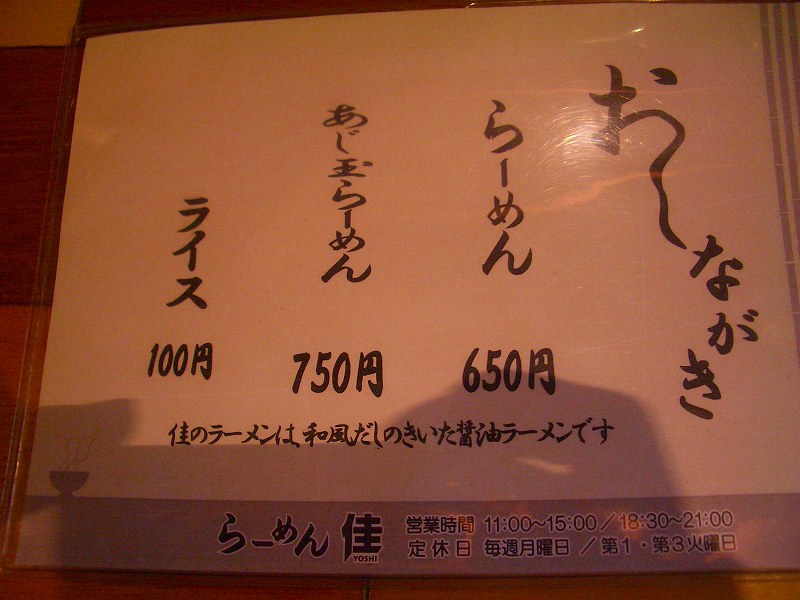 おしながき
らーめん 650円
あじ玉らーめん 750円
ライス 100円
佳のラーメンは、和風だしのきいた醤油ラーメンです
らーめん 佳 YOSHI
営業時間 11:00～15:00／18:30～21:00
定休日 毎週月曜日／第1・第3火曜日